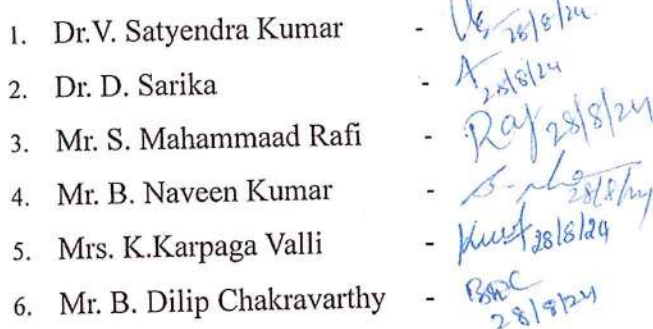 1. Dr.V. Satyendra Kumar - 28/8/24
2. Dr. D. Sarika - 28/8/24
3. Mr. S. Mahammaad Rafi - Raf 28/8/24
4. Mr. B. Naveen Kumar - 28/8/24
5. Mrs. K.Karpaga Valli - 28/8/24
6. Mr. B. Dilip Chakravarthy - BDC 28/8/24